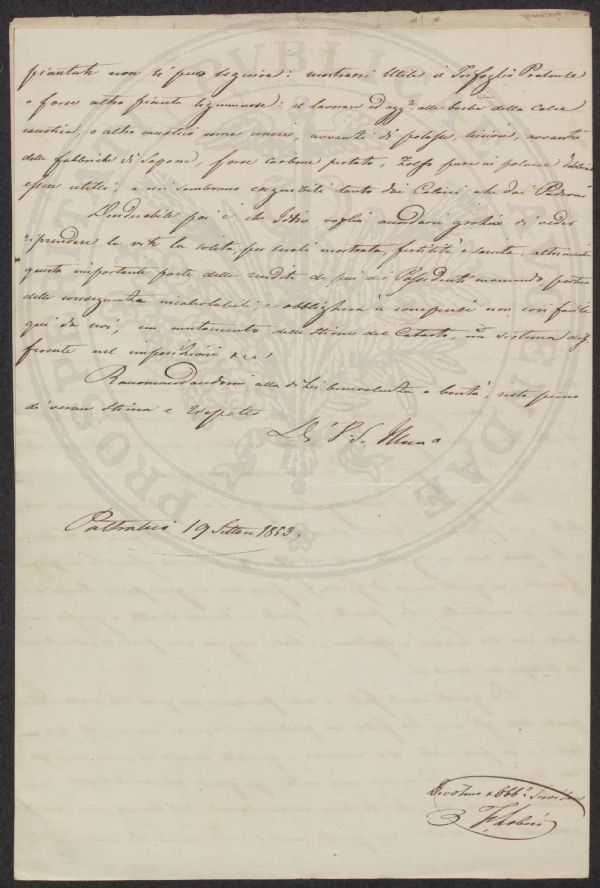 piantate non si può seguire: mostrarsi utile il Trifoglio Pratense
o forse altra pianta leguminosa: il lavorare ed agg.e alle barbe della Calce
caustica, o altro caustico come cenere, avvanti di potassa, avvanti
delle fabbriche di Sapone, forse carbone pestato, Zolfo pure in polvere
esser utili; e mi sembrano eseguibili tanto dai Coloni che dai Padroni
Desiderabile poi è che Iddio voglia accordarci grazia di veder
riprendere la vite la solita, per secoli mostrata, fertilità e sanità, altrimenti
questa importante parte della rendita di più dei Possidenti mancando, porterà
delle conseguenze incalcolabili; e obbligherà a compensi non così facili
qui da noi, un mutamento delle Stime del Catasto, un sistema dif-
ferente nel imposizioni x x x!
Raccomandandomi alla di Lei benevolenza e bontà, resto pieno
di verace Stima e Rispetto
Di V. S. Illma
19 Settem 1853.
Devotmo e Obb.o Servitore
PROSPERITATI PUBLICAE AUGENDAE